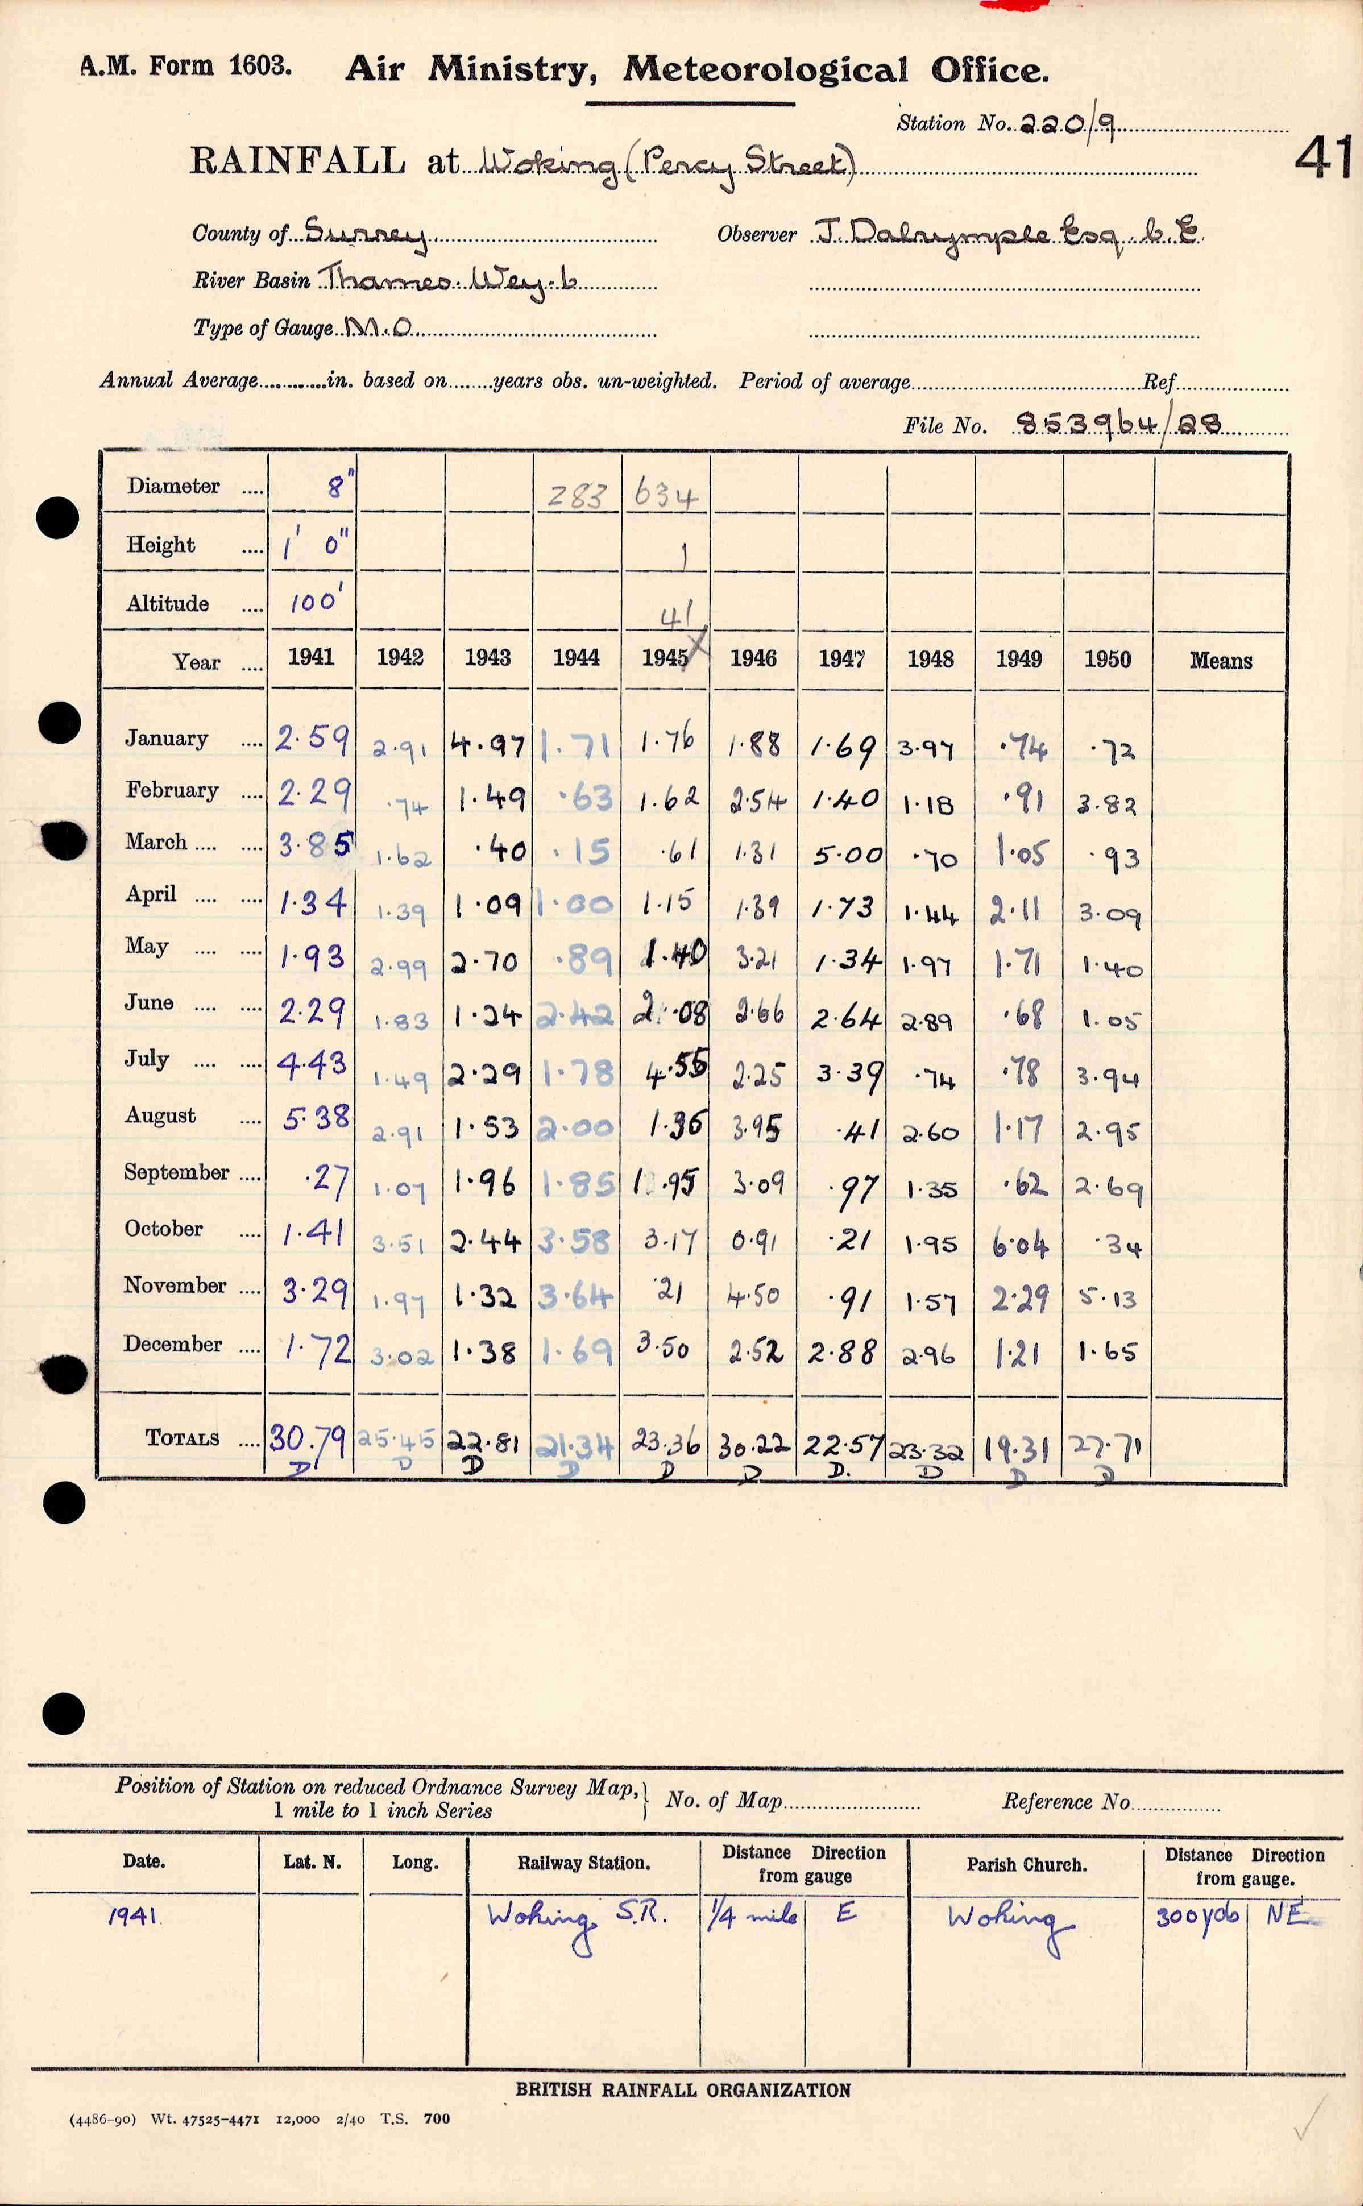 A.M. Form 1603. Air Ministry, Meteorological Office.
Station No. 220/9
41
RAINFALL at Woking (Percy Street)
County of Surrey Observer J. Dalrymple Esq. C.E.
River Basin Thames. Wey. b
Type of Gauge M.O
Annual Average............in. based on........years obs. un-weighted. Period of average.............Ref.............
File No. 853964/28
Diameter .... 8" 283 634
Height .... 1' 0" 1
Altitude .... 100' 41
Year .... 1941 1942 1943 1944 1945 X 1946 1947 1948 1949 1950 Means
January .... 2.59 2.91 4.97 1.71 1.76 1.88 1.69 3.97 .74 .72
February .... 2.29 .74 1.49 .63 1.62 2.54 1.40 1.18 .91 3.82
March .... .... 3.85 1.62 .40 .15 .61 1.31 5.00 .70 1.05 .93
April .... .... 1.34 1.39 1.09 1.00 1.15 1.39 1.73 1.44 2.11 3.09
May .... .... 1.93 2.99 2.70 .89 1.40 3.21 1.34 1.97 1.71 1.40
June .... .... 2.29 1.83 1.24 2.42 2.08 2.66 2.64 2.89 .68 1.05
July .... .... 4.43 1.49 2.29 1.78 4.55 2.25 3.39 .74 .78 3.94
August .... 5.38 2.91 1.53 2.00 1.36 3.95 .41 2.60 1.17 2.95
September .... .27 1.07 1.96 1.85 1.95 3.09 .97 1.35 .62 2.69
October .... 1.41 3.51 2.44 3.58 3.17 0.91 .21 1.95 6.04 .34
November .... 3.29 1.97 1.32 3.64 .21 4.50 .91 1.57 2.29 5.13
December .... 1.72 3.02 1.38 1.69 3.50 2.52 2.88 2.96 1.21 1.65
TOTALS .... 30.79 25.45 22.81 21.34 23.36 30.22 22.57 23.32 19.31 27.71
D D D D D D D. D D D
Position of Station on reduced Ordnance Survey Map,
1 mile to 1 inch Series } No. of Map............ Reference No............
Date. Lat. N. Long. Railway Station. Distance Direction from gauge Parish Church. Distance Direction from gauge.
1941 Woking S.R. 1/4 mile E Woking 300 yds NE
BRITISH RAINFALL ORGANIZATION
(4486-90) Wt. 47525-4471 12,000 2/40 T.S. 700